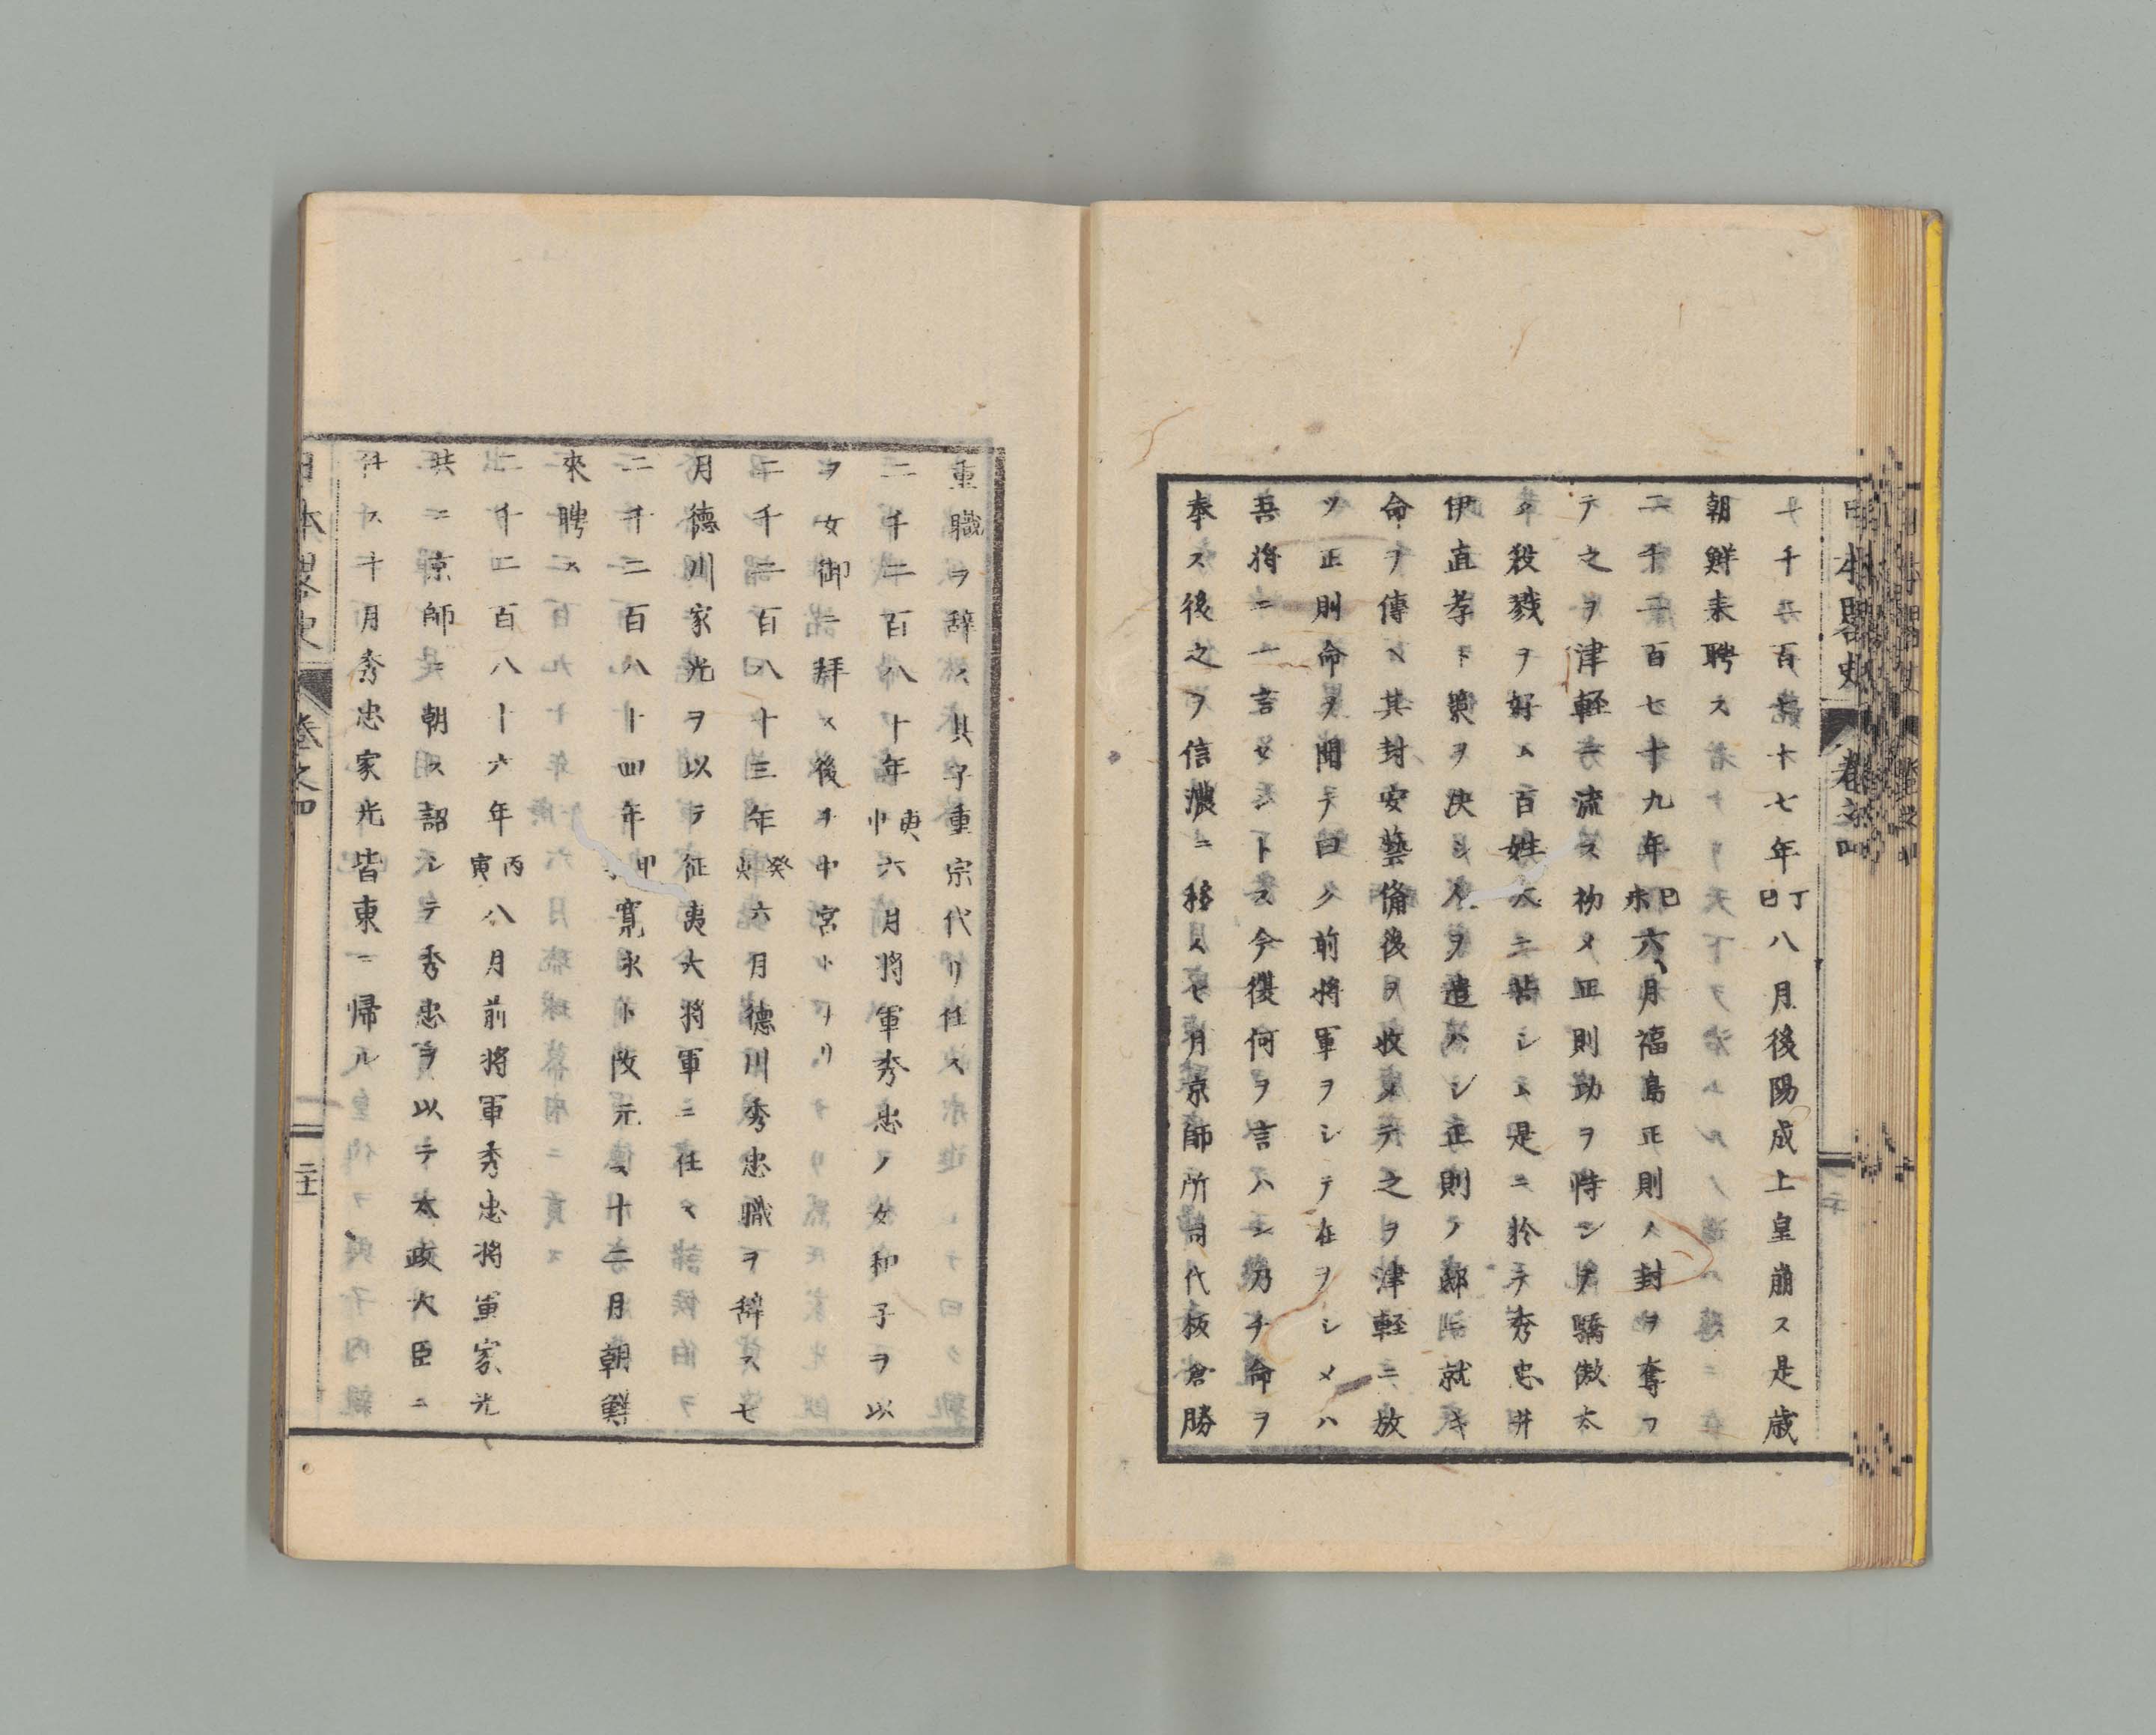 日本畧史 卷之四
二千二百七十七年丁巳八月後陽成上皇崩ス是歳
朝鮮来聘ス
二千二百七十九年己未六月福島正則ノ封ヲ奪フ
テ之ヲ津軽ニ流ス初メ正則功ヲ恃ンテ驕傲太
タ殺戮ヲ好ム百姓大ニ苦シム是ニ於テ秀忠井
伊直孝ト策ヲ決シ人ヲ遣ハシ正則ノ邸ニ就キ
命ヲ傳ヘ其封安藝備後ヲ收メテ之ヲ津軽ニ放
ツ正則命ヲ聞テ曰ク前将軍ヲシテ在ヲシメハ
吾将ニ一言セントス今復何ヲ言ハン乃チ命ヲ
奉ス後之ヲ信濃ニ移ス七月京師所司代板倉勝
重職ヲ辞ス其子重宗代リ任ス
二千二百八十年庚申六月将軍秀忠ノ女和子ヲ以
テ女御ニ拜ス後チ中宮トナリ
二千二百八十三年癸亥六月德川秀忠職ヲ辞ス七
月德川家光ヲ以テ征夷大将軍ニ任ス
二千二百八十四年甲寛永ト改元ス十二月朝鮮
來聘ス
二千二百八十六年丙寅八月前将軍秀忠将軍家光
共ニ京師ニ朝ス詔シテ秀忠ヲ以テ太政大臣ニ
任ス十月秀忠家光皆東ニ帰ル
日本畧史 卷之四 二十一